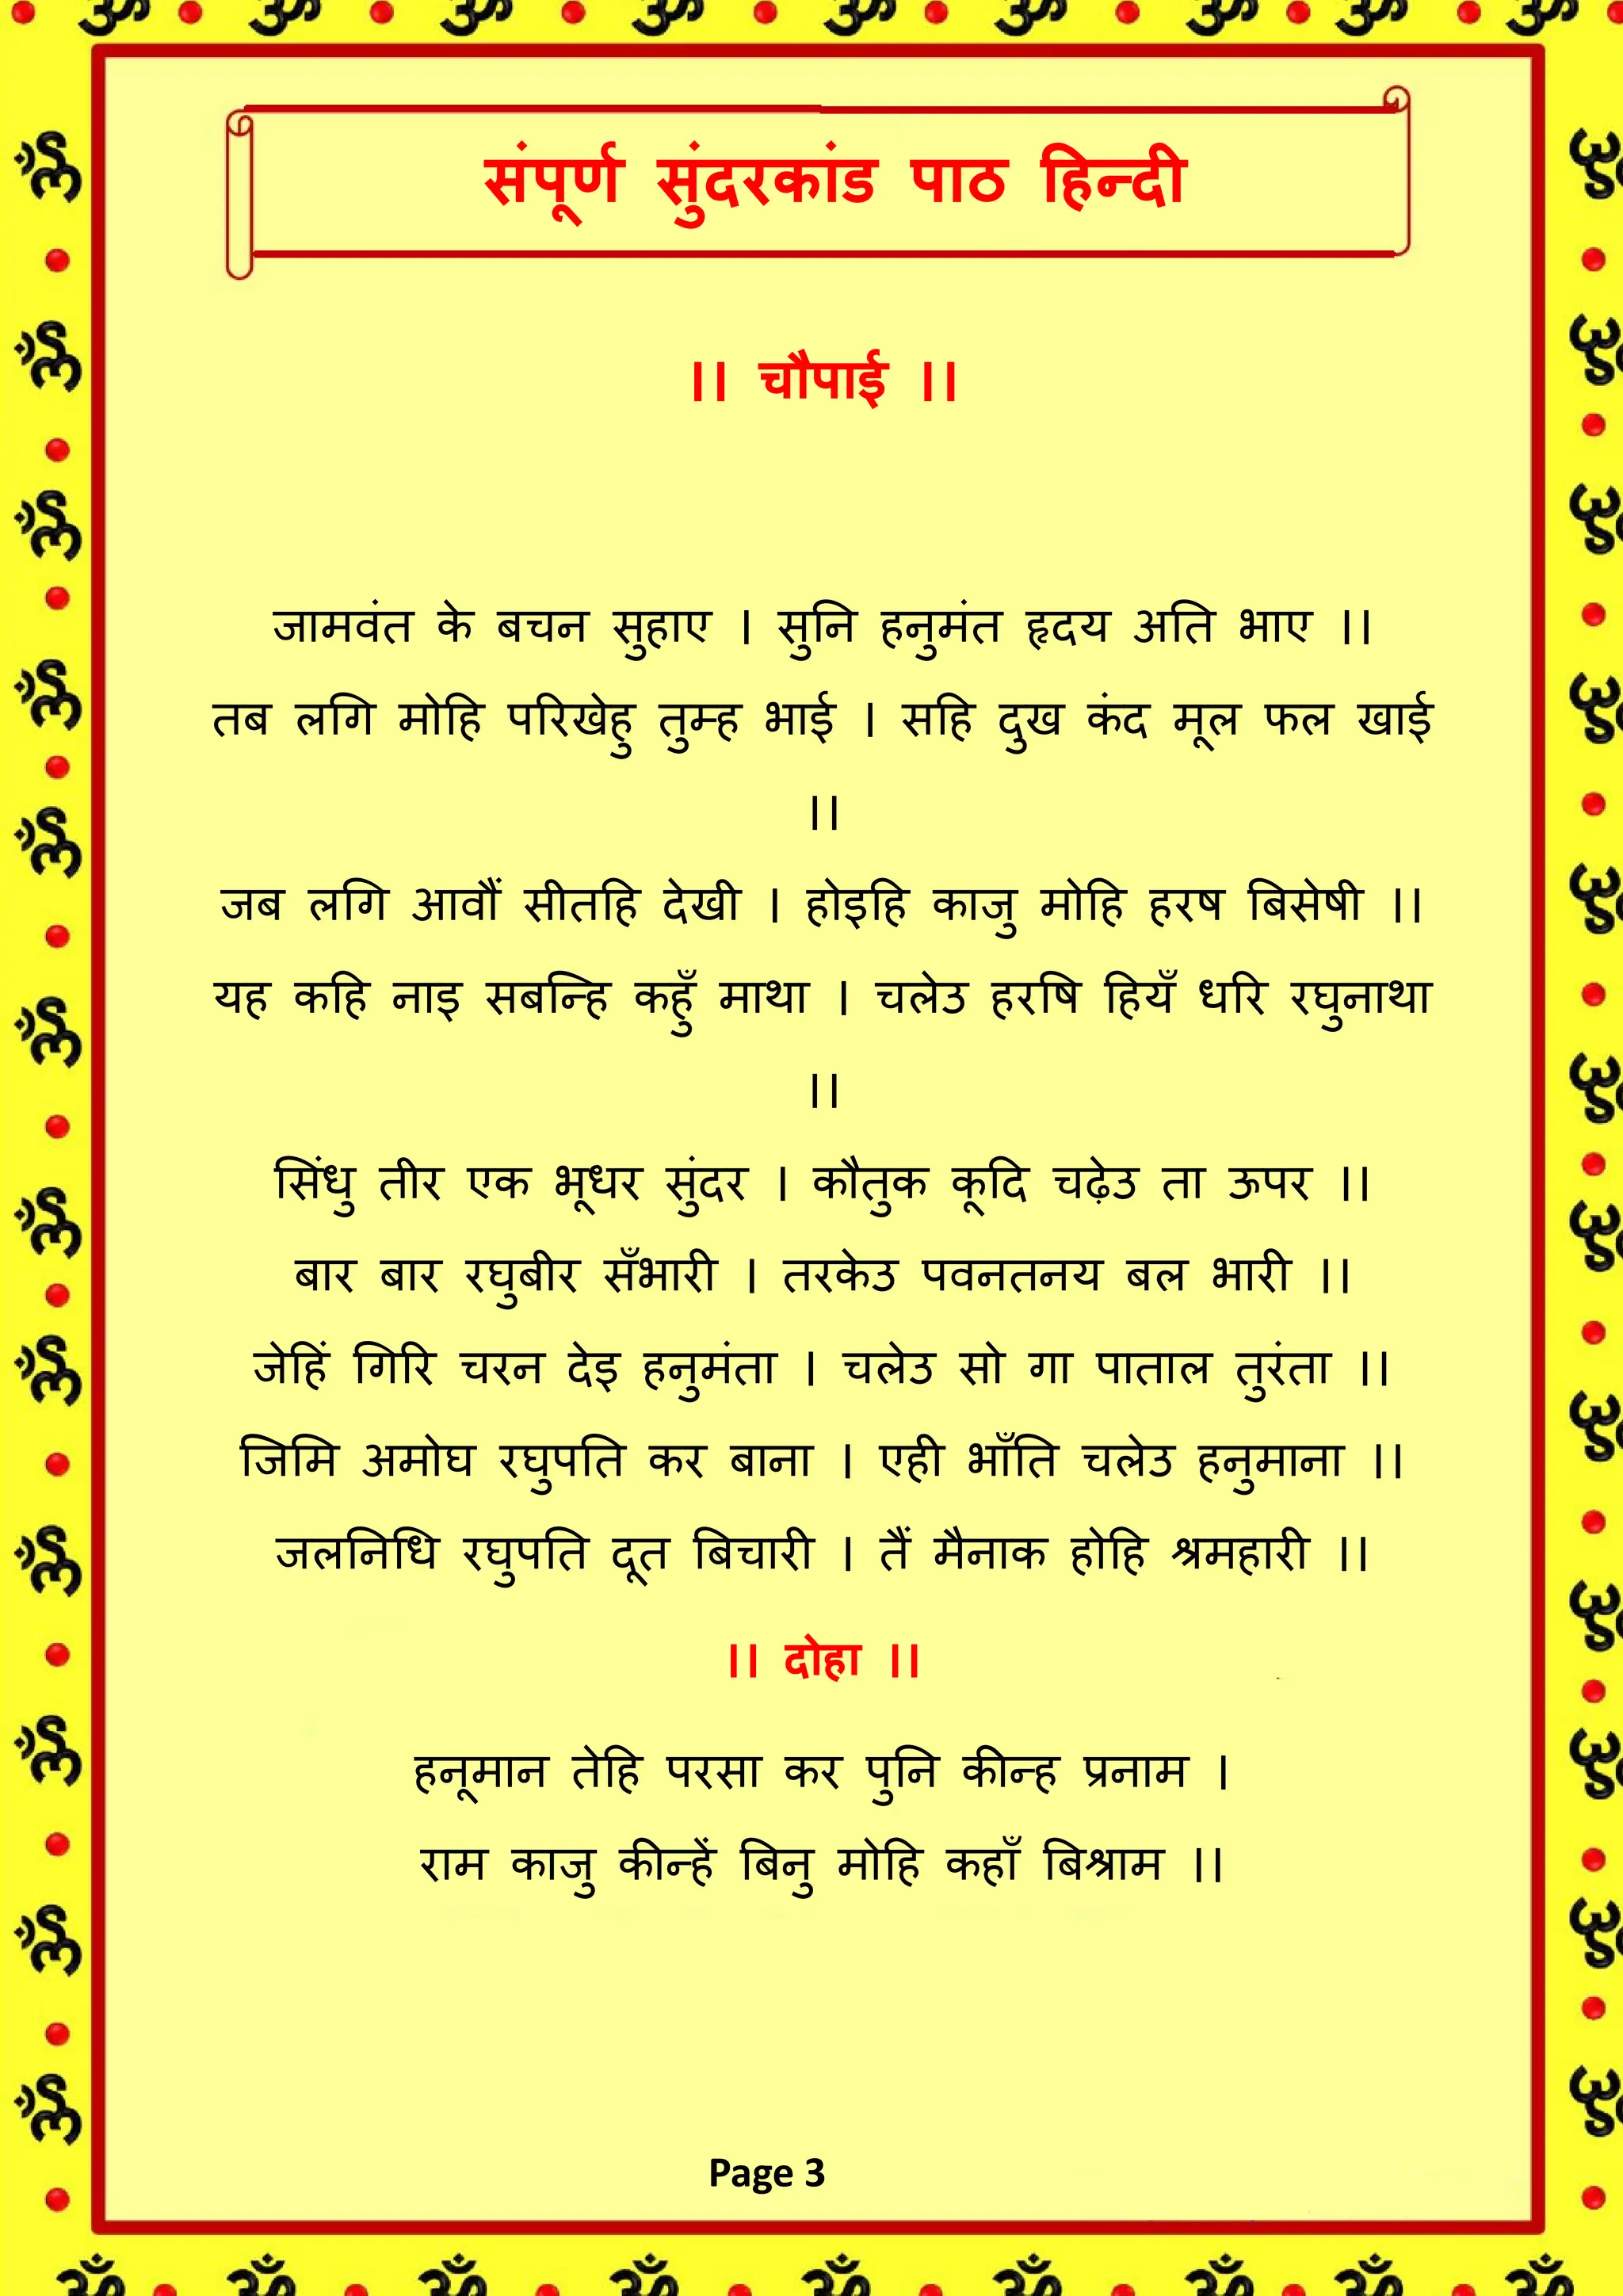 संपूर्ण सुंदरकांड पाठ हिन्दी
।। चौपाई ।।
जामवंत के बचन सुहाए । सुनि हनुमंत हृदय अति भाए ।।
तब लगि मोहि परिखेहु तुम्ह भाई । सहि दुख कंद मूल फल खाई
।।
जब लगि आवौं सीतहि देखी । होइहि काजु मोहि हरष बिसेषी ।।
यह कहि नाइ सबन्हि कहुँ माथा । चलेउ हरषि हियँ धरि रघुनाथा
।।
सिंधु तीर एक भूधर सुंदर । कौतुक कूदि चढ़ेउ ता ऊपर ।।
बार बार रघुबीर सँभारी । तरकेउ पवनतनय बल भारी ।।
जेहिं गिरि चरन देइ हनुमंता । चलेउ सो गा पाताल तुरंता ।।
जिमि अमोघ रघुपति कर बाना । एही भाँति चलेउ हनुमाना ।।
जलनिधि रघुपति दूत बिचारी । तैं मैनाक होहि श्रमहारी ।।
।। दोहा ।।
हनूमान तेहि परसा कर पुनि कीन्ह प्रनाम ।
राम काजु कीन्हें बिनु मोहि कहाँ बिश्राम ।।
Page 3